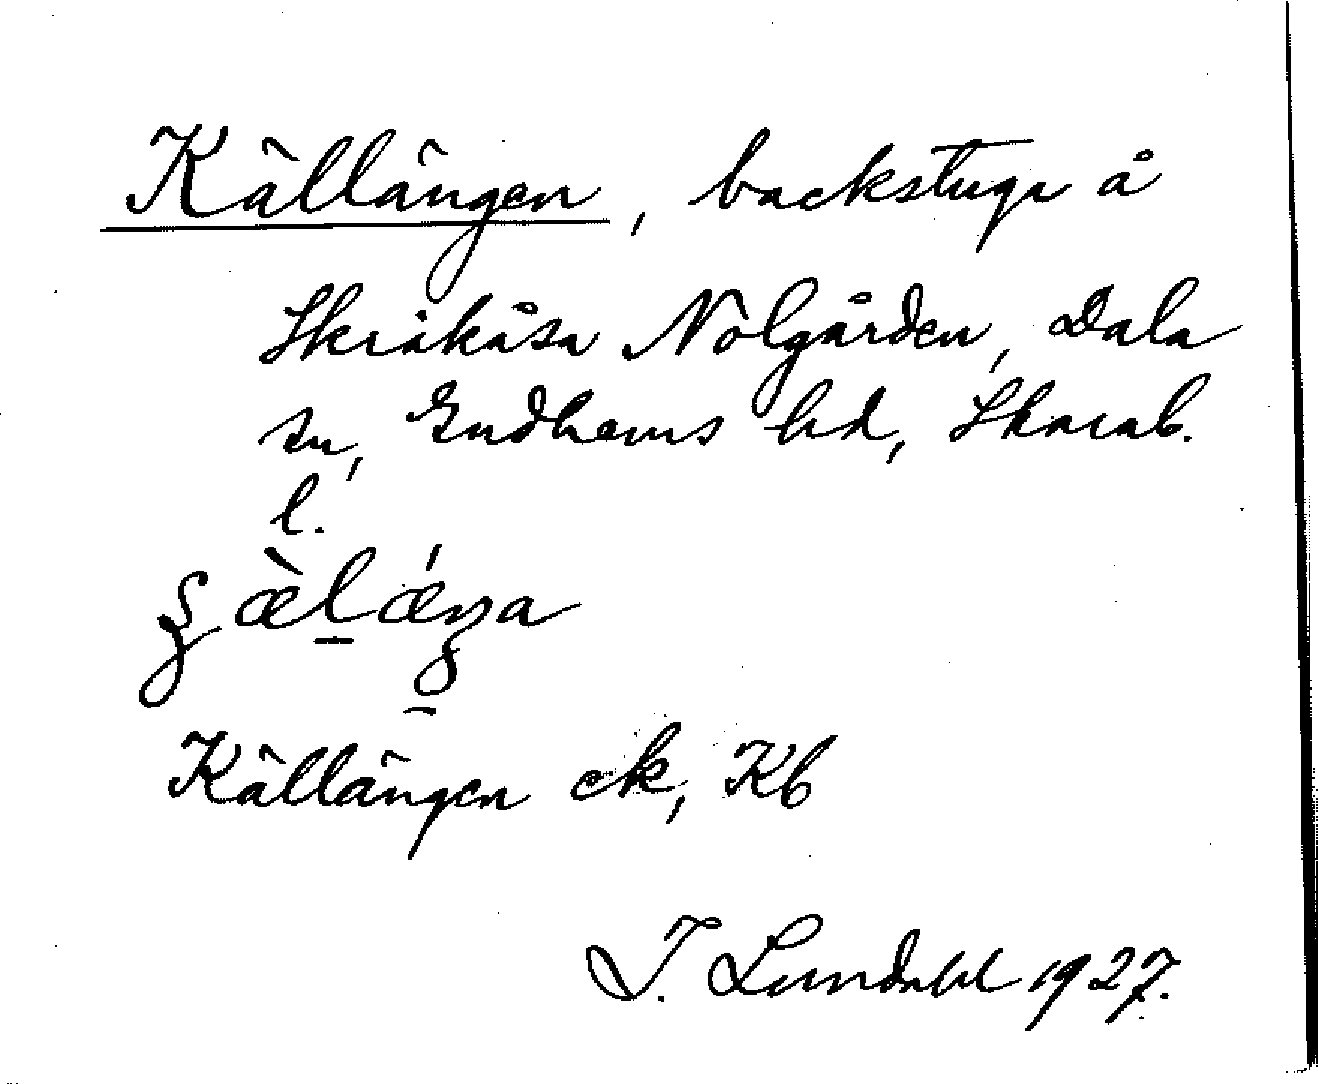 Källängen, backstuga å
Skråkåsa Nolgården, Dala
sn, Gudhems hd, Skarab.
l.
Källängen ek, Kb
I. Lundahl 1927.